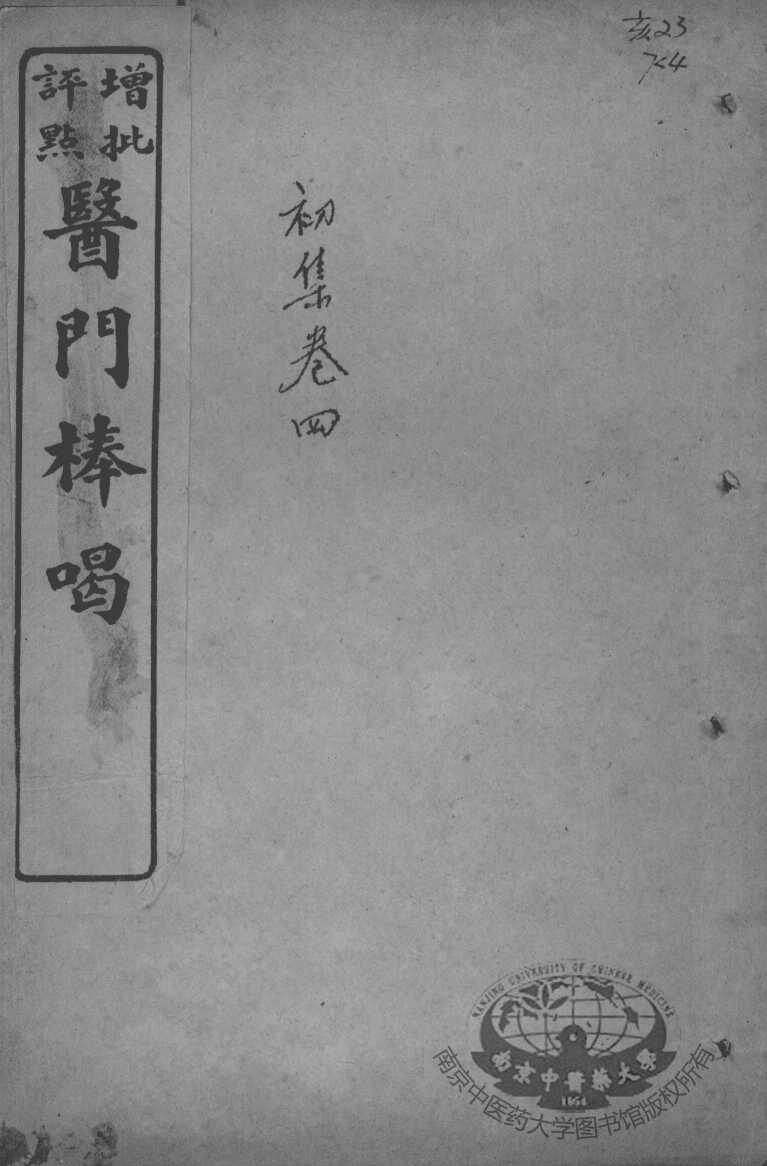 亥23
7<4
增批
評點
醫門棒喝
初集卷四
NANJING UNIVERSITY OF CHINESE MEDICINE
南京中醫藥大學
1954
南京中医药大学图书馆版权所有